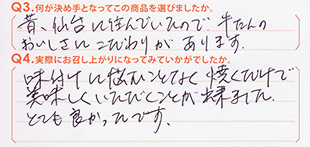 Q3.何が決め手となってこの商品を選びましたか。
昔、仙台に住んでいたので 牛たんの
おいしさにこだわりが あります。
Q4.実際にお召し上がりになってみていかがでしたか。
味付けに悩むことなく 焼くだけで
美味しくいただくことが出来ました
とても良かったです。